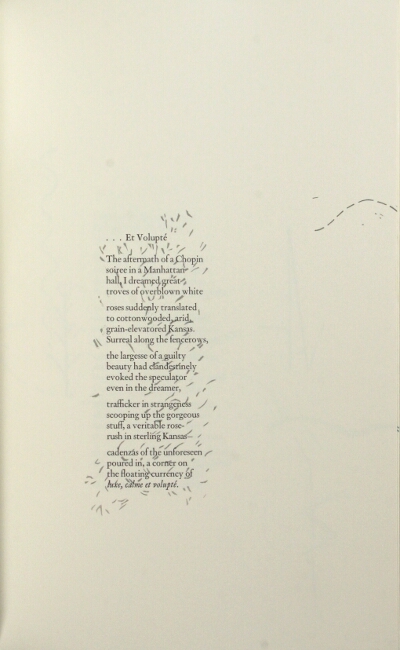 . . . Et Volupté
The aftermath of a Chopin
soiree in a Manhattan
hall, I dreamed great
troves of overblown white
roses suddenly translated
to cottonwooded, arid,
grain-elevatored Kansas.
Surreal along the fencerows,
the largesse of a guilty
beauty had clandestinely
evoked the speculator
even in the dreamer,
trafficker in strangeness
scooping up the gorgeous
stuff, a veritable rose-
rush in sterling Kansas—
cadenzas of the unforeseen
poured in, a corner on
the floating currency of
luxe, calme et volupté.